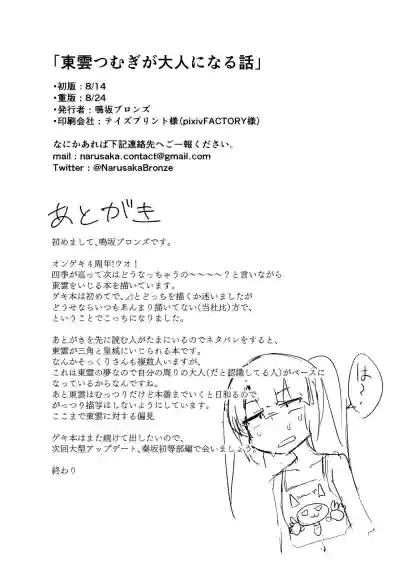 「東雲つむぎが大人になる話」
・初版：8/14
・重版：8/24
・発行者：鳴坂ブロンズ
・印刷会社：テイズプリント様(pixivFACTORY様)
なにかあれば下記連絡先へご一報ください。
mail : narusaka.contact@gmail.com
Twitter : @NarusakaBronze
あとがき
初めまして、鳴坂ブロンズです。
オンゲキ4周年!ウオ!
四季が巡って次はどうなっちゃうの〜〜〜〜?と言いながら
東雲をいじる本を描いています。
ゲキ本は初めてで、⊿とどっちを描くか迷いましたが
どうせならいつもあんまり描いてない(当社比)方で、
ということでこっちになりました。
あとがきを先に読む人がたまにいるのでネタバレをすると、
東雲が三角と皇城にいじられる本です。
なんかそっくりさんも複数人いますが、
これは東雲の夢なので自分の周りの大人(だと認識してる人)がベースに
なっているからなんですね。
あと東雲はむっつりだけど本番までいくと日和るので
がっつり描写はしないようにしています。
ここまで東雲に対する偏見
ゲキ本はまた続けて出したいので、
次回大型アップデート、奏坂初等部編で会いましょう。
終わり
は〜